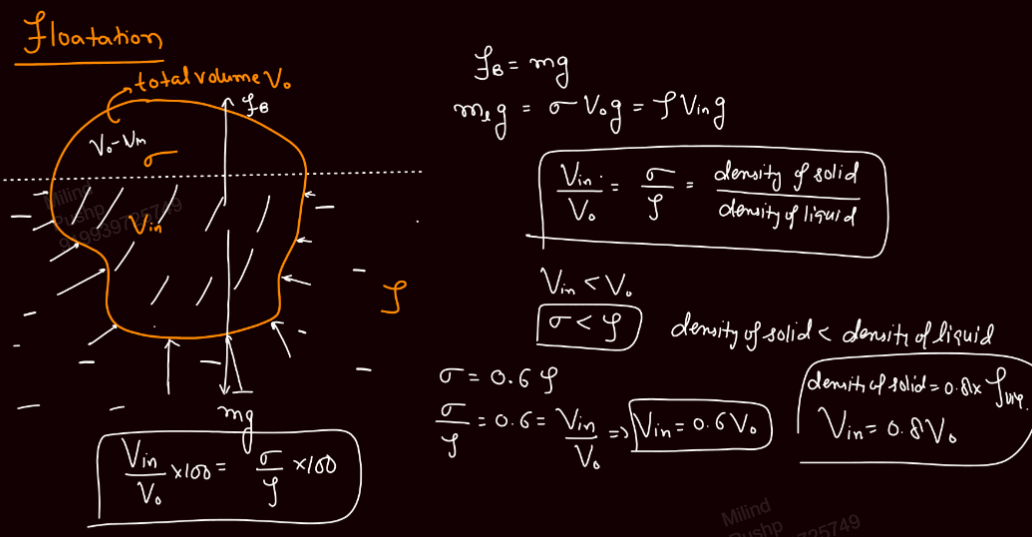 Floatation
total volume V₀
F_B
V₀-V_in
σ
V_in
ρ
mg
V_in/V₀ ×100 = σ/ρ ×100
F_B = mg
m_s g = σ V₀ g = ρ V_in g
V_in/V₀ = σ/ρ = density of solid/density of liquid
V_in < V₀
σ < ρ density of solid < density of liquid
σ = 0.6 ρ
σ/ρ = 0.6 = V_in/V₀ => V_in = 0.6 V₀
density of solid = 0.8 × ρ_liq
V_in = 0.8 V₀
Milind
Pushp
Milind
Pushp